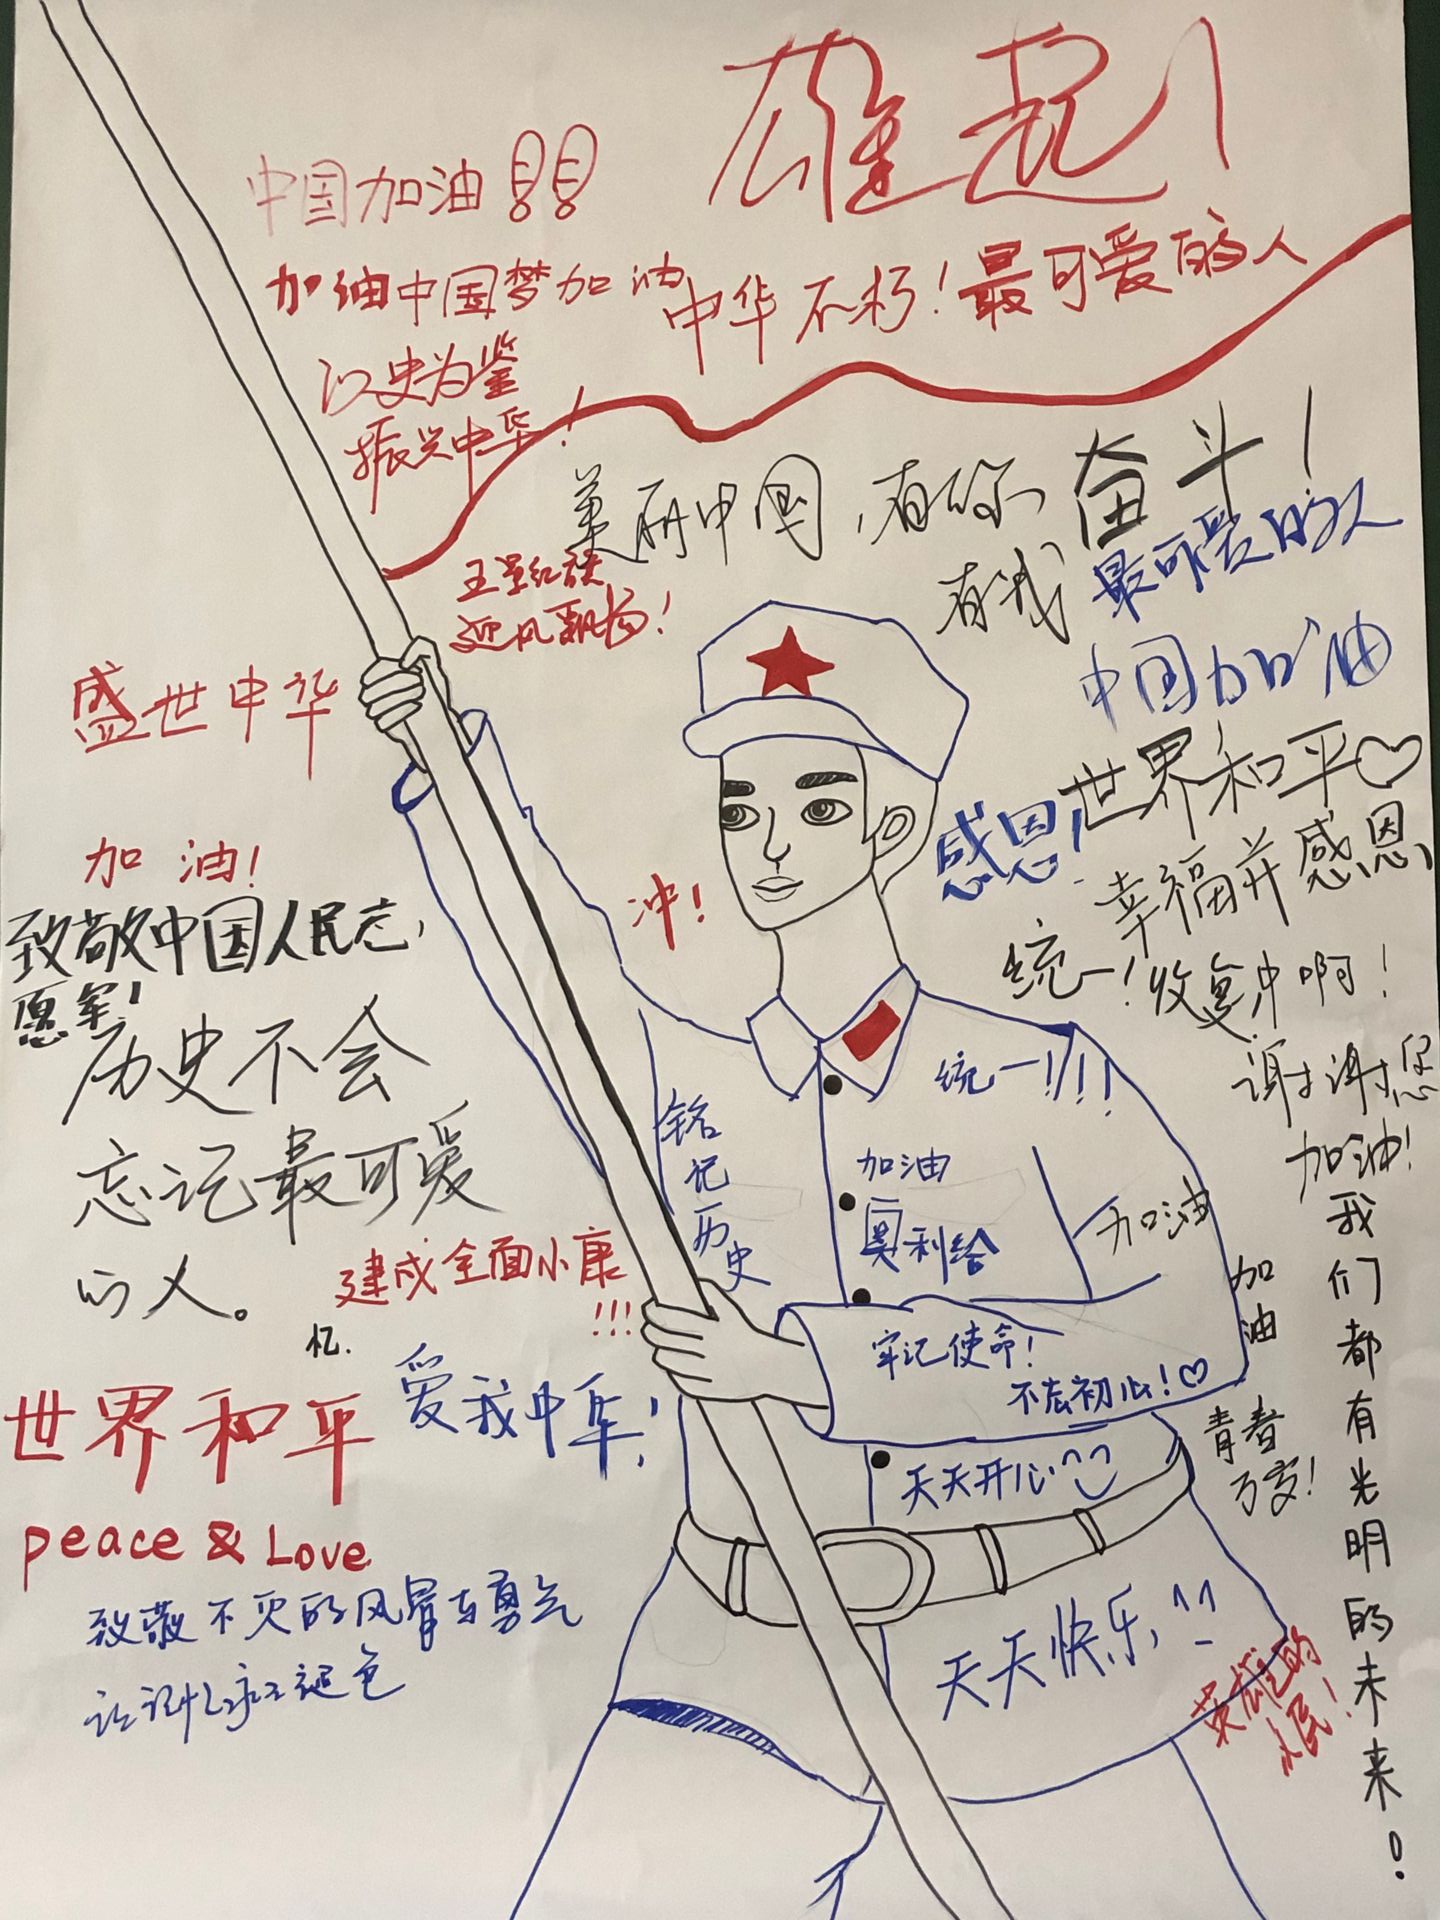 雄起!
中国加油!!
加油中国梦加油
中华不朽!
最可爱的人
以史为鉴
振兴中华!
美丽中国,有你
有我
奋斗!
最可爱的人
五星红旗
迎风飘扬!
中国加油
盛世中华
世界和平♡
感恩!
幸福并感恩
加油!
冲!
致敬中国人民志
愿军!
统一!收复冲啊!
历史不会
忘记最可爱
的人。
谢谢您
统一!!!
铭记历史
加油
奥利给
加油
加油!
我们都有光明的未来!
加油
建成全面小康
!!!
忆.
牢记使命!
不忘初心!♡
世界和平
爱我中华!
青春
万岁!
天天开心
peace & Love
致敬不灭的风骨与勇气
让记忆永不褪色
天天快乐
英雄的
人民!